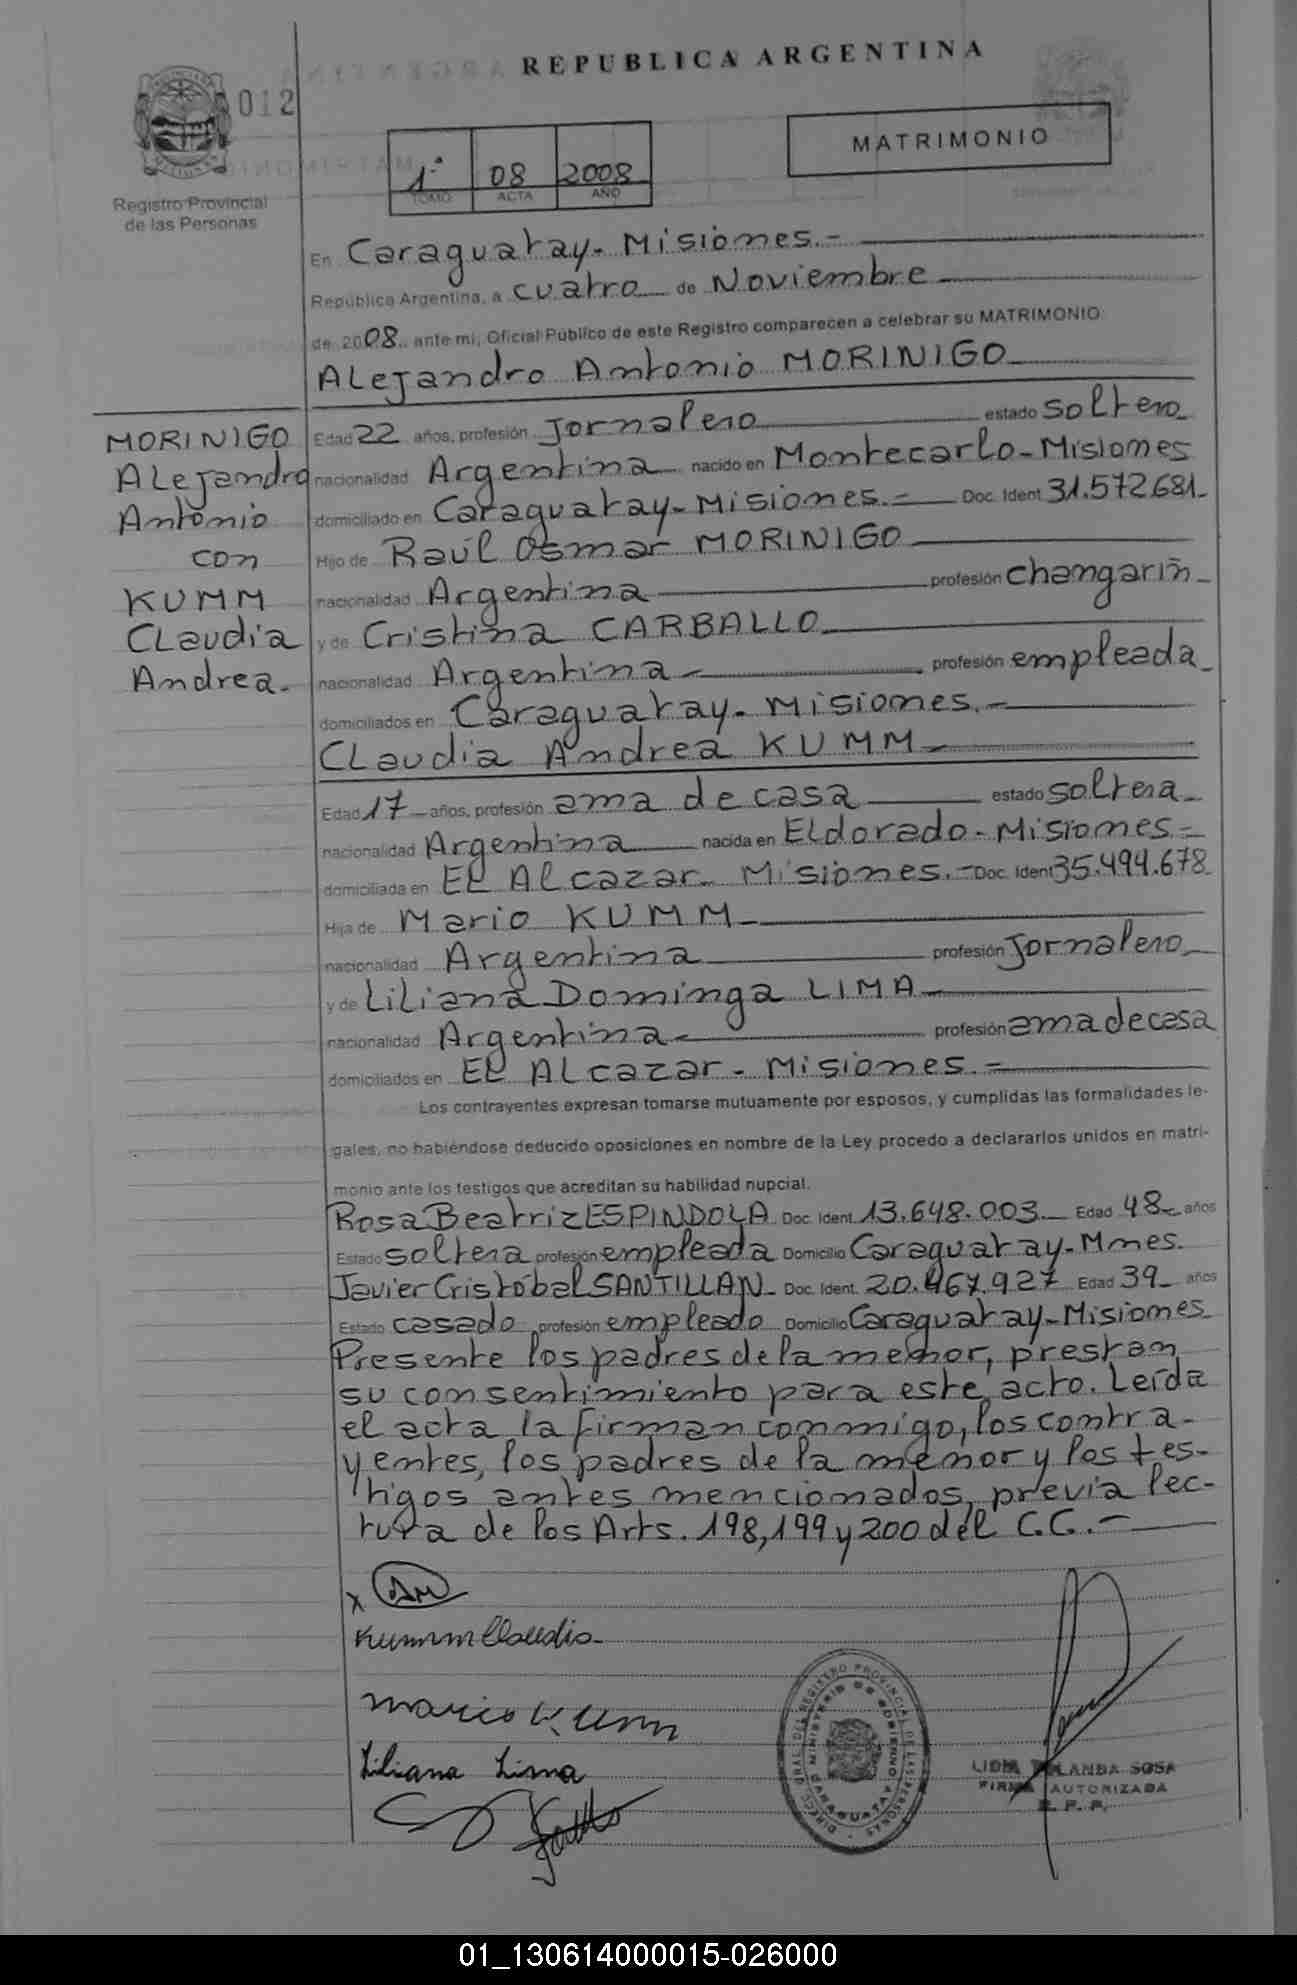 REPUBLICA ARGENTINA
012
MATRIMONIO
1º 08 2008
TOMO ACTA AÑO
Registro Provincial
de las Personas
En Caraguatay - Misiones.-
República Argentina, a cuatro de Noviembre
de 2008. ante mi, Oficial Público de este Registro comparecen a celebrar su MATRIMONIO
ALejandro Antonio MORINIGO
MORINIGO
ALejandro
Antonio
con
KUMM
CLaudia
Andrea.
Edad 22 años, profesión Jornalero estado soltero
nacionalidad Argentina nacido en Montecarlo - Misiones
domiciliado en Caraguatay - Misiones.= Doc. Ident 31.572.681.
Hijo de Raúl Osmar MORINIGO
nacionalidad Argentina profesión changarín
y de Cristina CARBALLO
nacionalidad Argentina profesión empleada
domiciliados en Caraguatay - Misiones.-
CLaudia Andrea KUMM
Edad 17 años, profesión ama de casa estado soltera
nacionalidad Argentina nacida en ELdorado - Misiones =
domiciliada en EL ALcazar - Misiones.= Doc. Ident 35.494.678
Hija de Mario KUMM
nacionalidad Argentina profesión Jornalero
y de LiLiana Dominga LIMA
nacionalidad Argentina profesión ama de casa
domiciliados en EL ALcazar - Misiones.=
Los contrayentes expresan tomarse mutuamente por esposos, y cumplidas las formalidades le-
gales, no habiéndose deducido oposiciones en nombre de la Ley procedo a declararlos unidos en matri-
monio ante los testigos que acreditan su habilidad nupcial.
Rosa Beatriz ESPINDOLA Doc. Ident. 13.648.003 Edad 48 años
Estado soltera profesión empleada Domicilio Caraguatay - Mnes.
Javier Cristóbal SANTILLAN Doc. Ident. 20.467.927 Edad 39 años
Estado casado profesión empleado Domicilio Caraguatay - Misiones
Presente los padres de la menor, prestan
su consentimiento para este acto. Leída
el acta la firman conmigo, los contra-
yentes, los padres de la menor y los tes-
tigos antes mencionados, previa lec-
tura de los Arts. 198, 199 y 200 del C.C.-
x AM
Kumm Claudia
Mario Kumm
Liliana Lima
DIRECC. GRAL. DEL REGISTRO PROVINCIAL DE LAS PERSONAS
MINISTERIO DE GOBIERNO
CARAGUATAY
LIDIA YOLANDA SOSA
FIRMA AUTORIZADA
R. P. P.
01_130614000015-026000